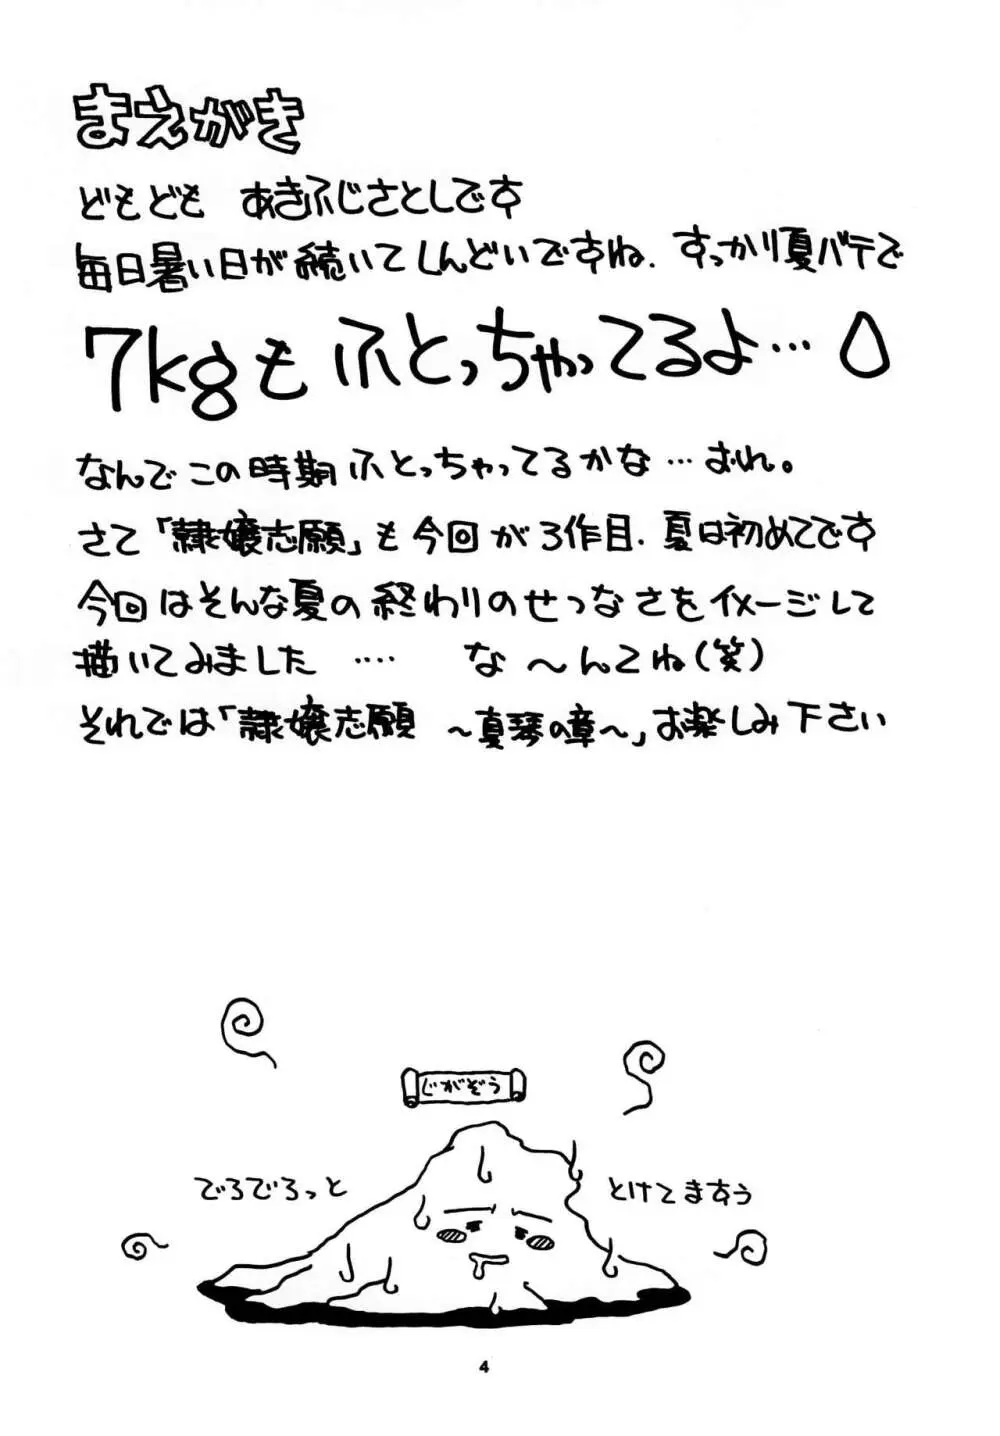 まえがき
どもども あきふじさとしです
毎日暑い日が続いてしんどいですね. すっかり夏バテで
7kgもふとっちゃってるよ…
なんでこの時期ふとっちゃってるかな…おれ。
さて「隷嬢志願」も今回が3作目. 夏は初めてです
今回はそんな夏の終わりのせつなさをイメージして
描いてみました …. な〜んてね(笑)
それでは「隷嬢志願 〜真琴の章〜」お楽しみ下さい
じがぞう
でろでろっと
とけてますぅ
4